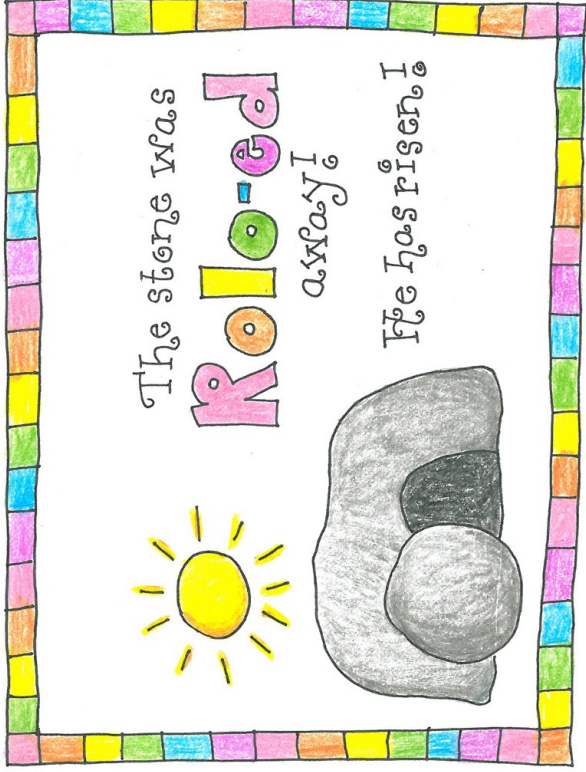 The stone was
Rolo-ed
away!
He has risen!